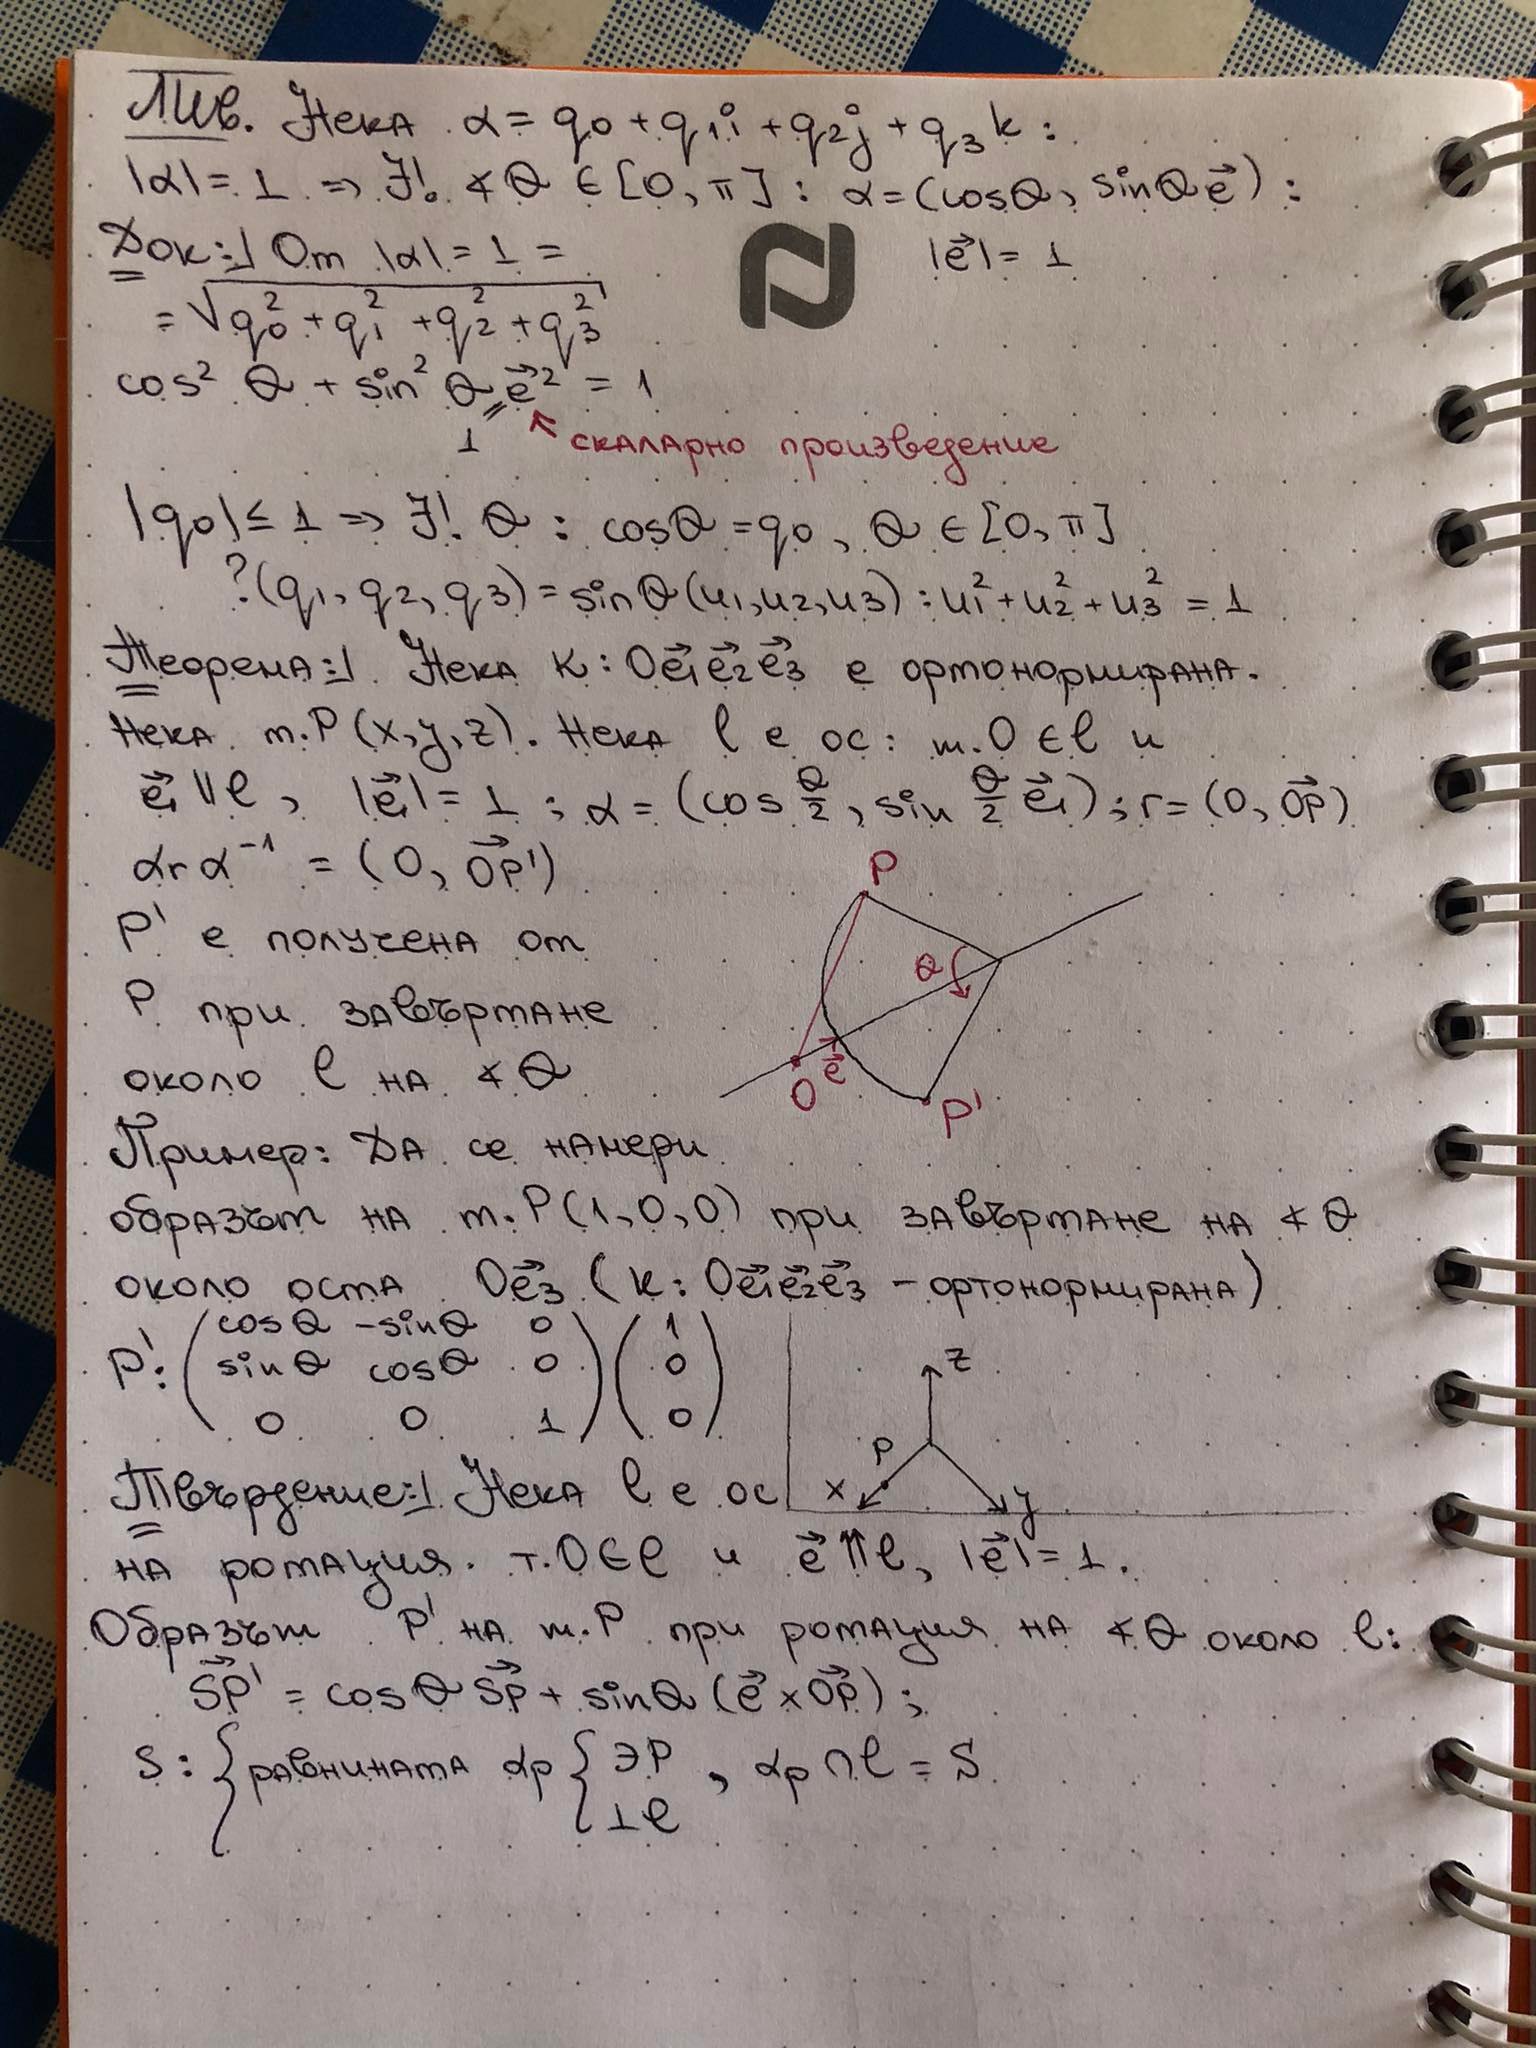 Тв. Нека α = q0 + q1i + q2j + q3k :
|α| = 1 => ∃! ∢θ ∈ [0, π] : α = (cosθ, sinθ e⃗) :
|e⃗| = 1
Док:| От |α| = 1 =
= √(q0² + q1² + q2² + q3²)
cos² θ + sin² θ e⃗² = 1
1
скаларно произведение
|q0| ≤ 1 => ∃! θ : cosθ = q0, θ ∈ [0, π]
?(q1, q2, q3) = sinθ(u1, u2, u3) : u1² + u2² + u3² = 1
Теорема:| Нека K : Oe⃗1e⃗2e⃗3 е ортонормирана.
Нека т.P(x, y, z). Нека l е ос : т.O ∈ l и
e⃗1 || l, |e⃗1| = 1 ; α = (cos θ/2, sin θ/2 e⃗1) ; r = (0, OP⃗)
αrα⁻¹ = (0, OP⃗')
P' е получена от
P при завъртане
около l на ∢θ
P
θ
O
e⃗
P'
Пример: Да се намери
образът на т.P(1, 0, 0) при завъртане на ∢θ
около оста Oe⃗3 (K : Oe⃗1e⃗2e⃗3 - ортонормирана)
P': (cosθ -sinθ 0) (1)
(sinθ cosθ 0) (0)
(0 0 1) (0)
z
P
x
y
Твърдение:| Нека l е ос
на ротация. т.O ∈ l и e⃗ ⇈ l, |e⃗| = 1.
Образът P' на т.P при ротация на ∢θ около l:
SP⃗' = cosθ SP⃗ + sinθ (e⃗ x OP⃗) ;
S : { равнината αp { ∋P , αp ∩ l = S
⊥ l